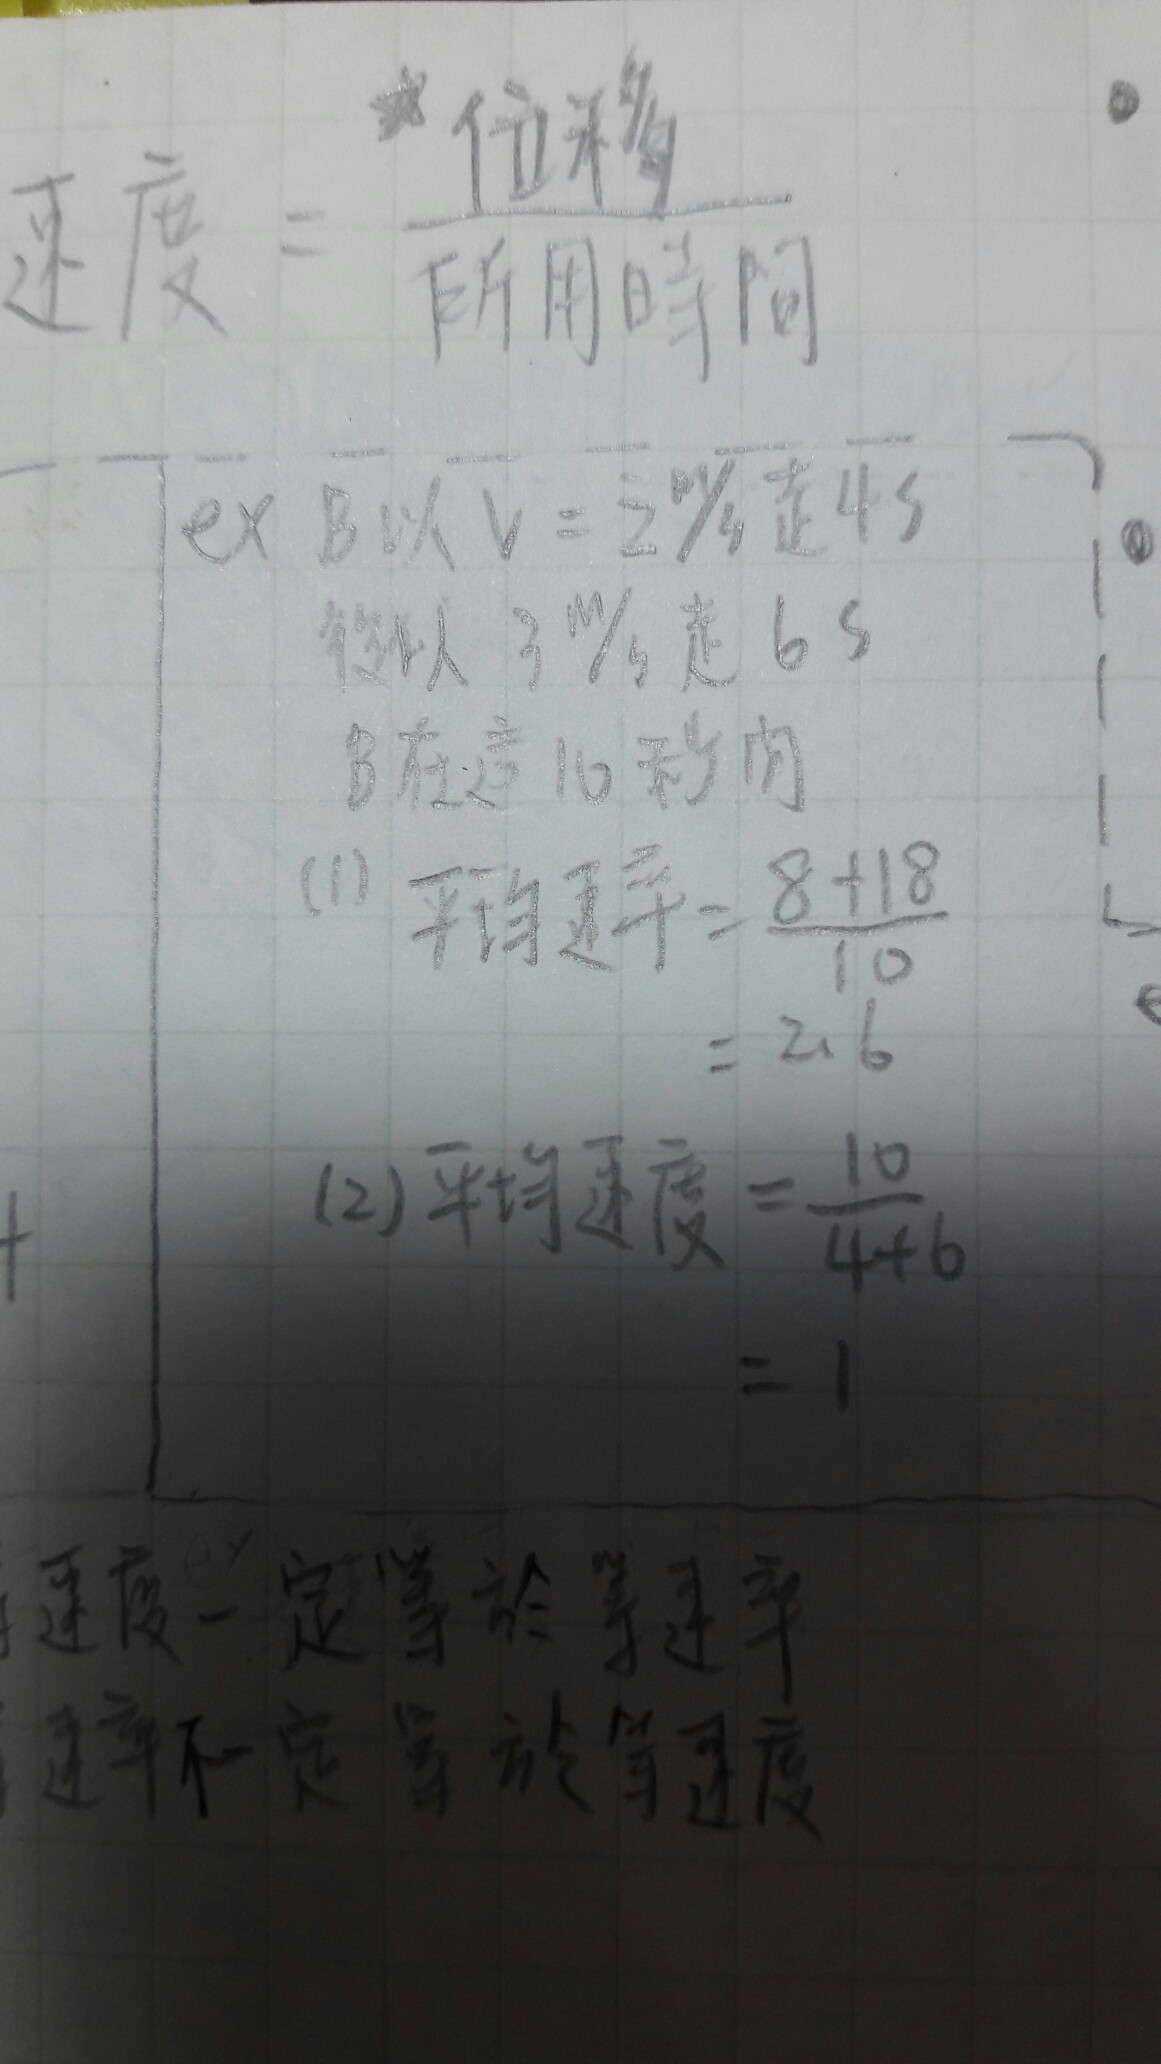 *位移
速度 = 
所用時間
ex B以 V = 2 m/s 走4s
後以 3 m/s 走 6 s
B在這10秒內
(1) 平均速率 = 8+18
10
= 2.6
(2) 平均速度 = 10
4+6
= 1
速度一定等於等速率
速率不一定等於等速度